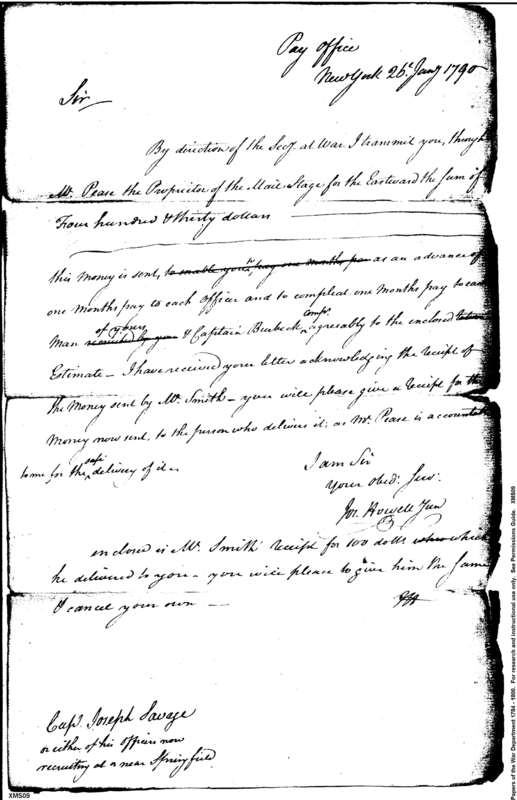 Pay Office
New York 26t Jany 1790
Sir
By direction of the Secy. at War I transmit you, through
Mr. Pease the Proprietor of the Mail Stage for the Eastward the Sum of
Four hundred & thirty dollars
this Money is sent, to enable you to pay one months pay as an advance of
one months pay to each officer and to compleat one Months pay to each
of yours Comps.
Man recruited by you & Captain Burbeck agreeably to the enclosed
Estimate – I have received your letter acknowledging the receipt of
the Money sent by Mr. Smith – you will please give a receipt for the
Money now sent, to the person who delivers it; as Mr. Pease is accountable
safe
to me for the delivery of it –
I am Sir
Your Obed. Serv.
Jos. Howell Jun
enclosed is Mr. Smith receipt for 100 dolls who which
he delivered to you – you will please to give him the Same
& cancel your own –
JH
Capt. Joseph Savage
or either of his officers now
recruiting at or near Springfield
XMS09
Papers of the War Department 1784 - 1800. For research and instructional use only. See Permissions Guide. XMS09